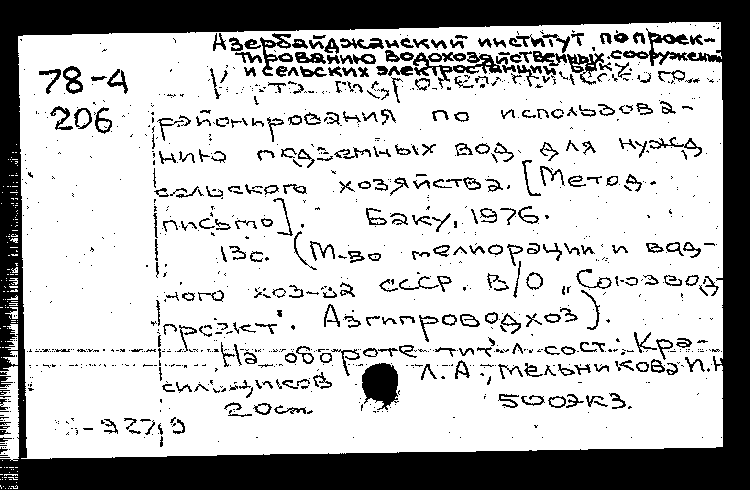 Азербайджанский институт по проек-
тированию водохозяйственных сооружений
и сельских электростанций. Баку
78-4
206
районирования по использова-
нию подземных вод для нужд
сельского хозяйства. [Метод.
письмо]. Баку, 1976.
13с. (М-во мелиорации и вод-
ного хоз-ва СССР. В/О „Союзвод-
проект". Азгипроводхоз).
На обороте тит. л. сост.: Кра-
сильщиков Л.А., Мельникова И.Н
20см. 500экз.